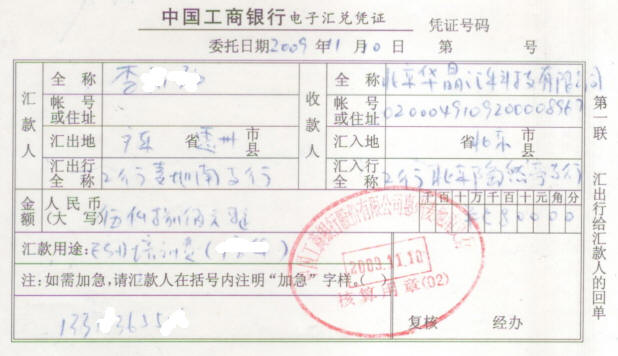 中国工商银行电子汇兑凭证 凭证号码
委托日期2009年11月10日 第 号
汇款人 全称 李
帐号或住址
汇出地 广东省惠州市县
汇出行全称 工行 南 行
收款人 全称 北京华晶汽车科技有限公司
帐号或住址 0200049109200008967
汇入地 省北京市县
汇入行全称 工行北京陶然亭支行
金额 人民币(大写) 伍仟捌佰元正
千百十万千百十元角分
¥580000
汇款用途: 培训费(
注:如需加急,请汇款人在括号内注明“加急”字样。( )
133 3655
复核 经办
2009.11.10
核算用章(02)
第一联 汇出行给汇款人的回单